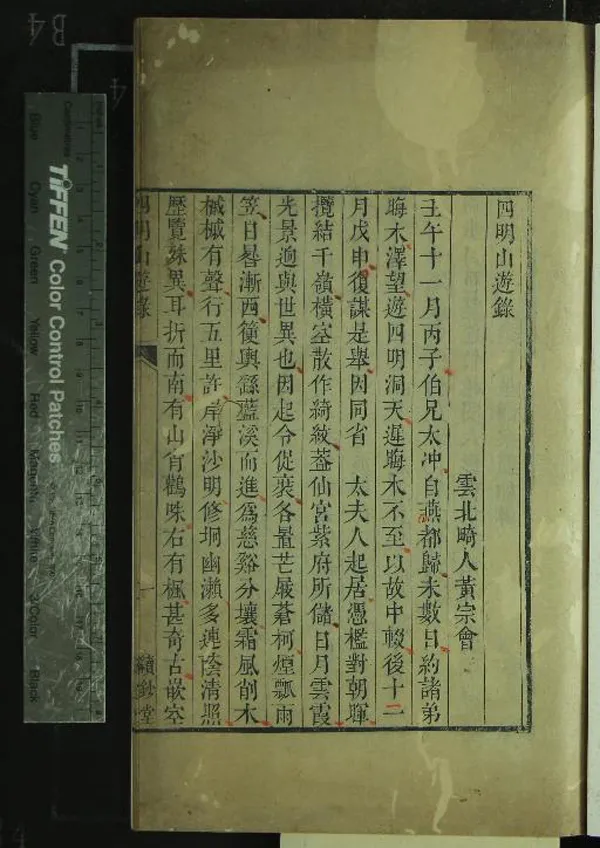 四明山遊錄
雲北畸人黃宗會
壬午十一月丙子伯兄太冲自燕都歸未數日約諸弟
晦木澤望遊四明洞天遲晦木不至以故中輟後十二
月戊申復謀是舉因同省 太夫人起居憑檻對朝暉
攬結千嶺橫空散作綺紋葢仙宮紫府所儲日月雲霞
光景逈與世異也因起令促裝各置芒屐蒼柯煙瓢雨
笠日晷漸西籃輿繇藍溪而進爲慈谿分壤霜風削木
槭槭有聲行五里許岸淨沙明修坰幽瀨多連陰清照
歷覽殊異耳折而南有山肖鸛咮右有楓甚奇古嵌空
四明山遊錄
一
續鈔堂
TIFFEN Color Control Patches
Blue
Cyan
Green
Yellow
Red
Magenta
White
3/Color
Black
Centimetres
B4
4